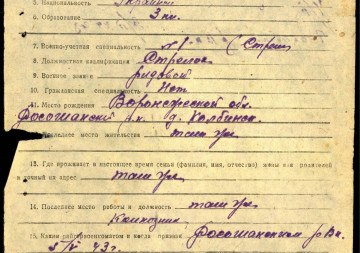 5. Национальность Украин
6. Образование 3 кл.
7. Военно-учетная специальность №1 (Стрел
8. Должностная квалификация Стрелок
9. Военное звание рядовой
10. Гражданская специальность Нет
11. Место рождения Воронежской обл.
Россошанский р. д. Колбинск.
последнее место жительства там же
13. Где проживает в настоящее время семья (фамилия, имя, отчество) жены или родителей
и точный их адрес там же
14. Последнее место работы и должность там же
Колхозник
15. Каким райвоенкоматом и когда призван Россошанским рВк.
43 г.